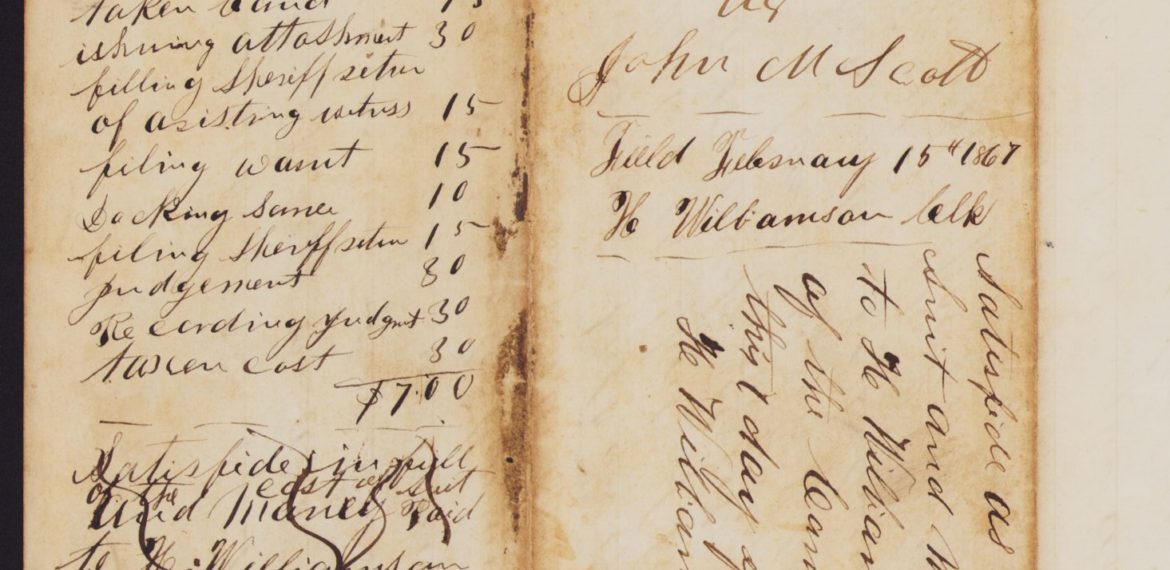 taken bond 15
ishuing attachment 30
filling Sheriffs retur
of asisting witness 15
filing warnt 15
Docking same 10
filing Sheriffs retur 15
judgement 80
Recording Judgmt 30
taxcen cost 30
$7.00
Satisfide in full
of the cost of suit
and Money Paid
to H. Williamson
vs
John M Scott
Field February 15th 1867
H Williamson Clk
Satisfide as
suit and
to H William
of the
this day
H William